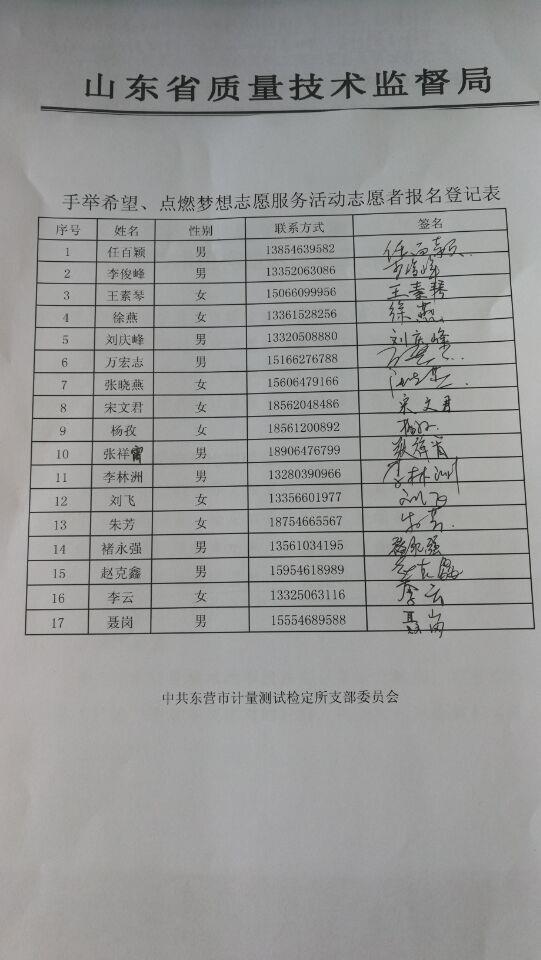 山东省质量技术监督局
手举希望、点燃梦想志愿服务活动志愿者报名登记表
序号 姓名 性别 联系方式 签名
1 任百颖 男 13854639582 任百颖
2 李俊峰 男 13352063086
3 王素琴 女 15066099956 王素琴
4 徐燕 女 13361528256 徐燕
5 刘庆峰 男 13320508880 刘庆峰
6 万宏志 男 15166276788
7 张晓燕 女 15606479166
8 宋文君 女 18562048486 宋文君
9 杨孜 女 18561200892 杨孜
10 张祥宵 男 18906476799 张祥宵
11 李林洲 男 13280390966 李林洲
12 刘飞 女 13356601977 刘飞
13 朱芳 女 18754665567 朱芳
14 褚永强 男 13561034195 褚永强
15 赵克鑫 男 15954618989 赵克鑫
16 李云 女 13325063116 李云
17 聂岗 男 15554689588 聂岗
中共东营市计量测试检定所支部委员会